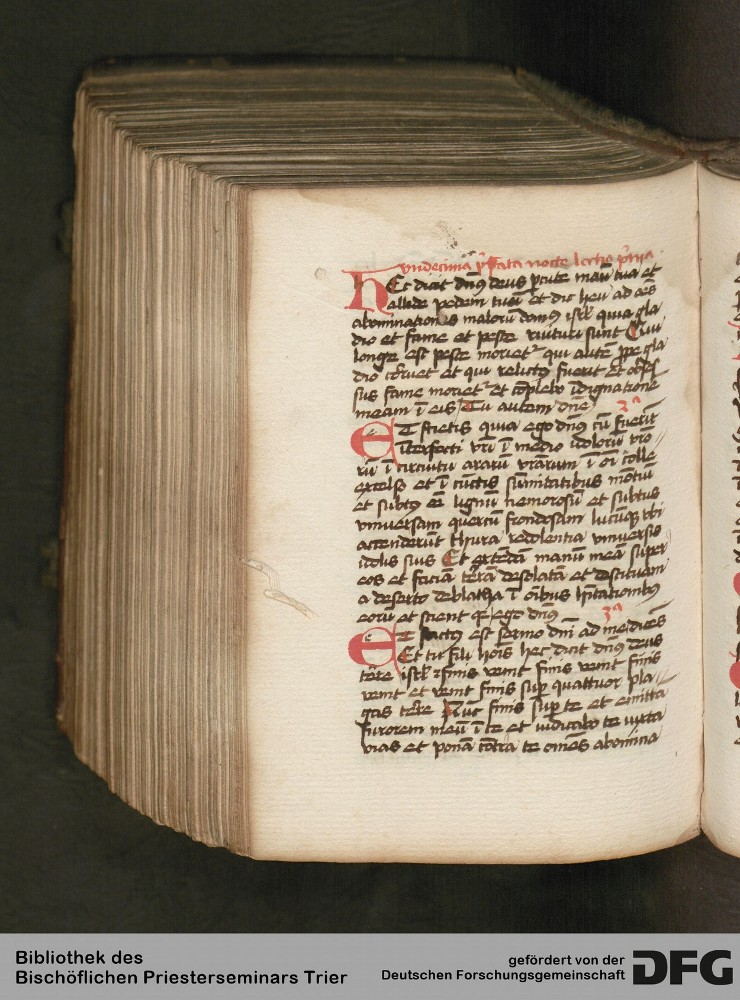 vndecima p̄fata nocte lectio p̄ma
hEc dicit dn̄s deus p̄cute manū tua et
allide pedem tuū et dic heu ad oēs
abominationes malorū domꝰ isrl̄ quia gla
dio et fame et peste ruituri sunt Qui
longe est peste moriet̄ qui autē ꝓpe gla
dio corruet et qui relictꝰ fuerit et obses
sus fame moriet̄ et cōplebo īdignationē
meam ī eis Tu autem dn̄e 2ᵃ
ET scietis quia ego dn̄s cū fuerīt
īterfecti vr̄i ī medio idolorū vr̄o
rū ī circuitu ararū vr̄arum ī oī colle
excelso et ī cūctis sūmitatibus mōtiū
et subtꝰ oē lignū nemorosū et subtus
vniuersam quercū frondosam locūqꝫ vbi
accenderūt thura redolentia vniuersis
idolis suis Et extendā manū meā super
eos et faciā terrā desolatā et destitutam
a deserto deblatha ī oībus hītationibꝰ
eorū et scient qꝫ ego dn̄s 3ᵃ
ET factus est sermo dn̄i ad me dicēs
Et tu fili hoīs hec dicit dn̄s deus
terre isrl̄ finis venit finis venit finis
venit et venit finis suꝑ quattuor pla
gas terre Nūc finis suꝑ te et emittā
furorem meū ī te et iudicabo te iuxta
vias et ponā cōtra te om̄es abomina
Bibliothek des
Bischöflichen Priesterseminars Trier
gefördert von der
Deutschen Forschungsgemeinschaft
DFG